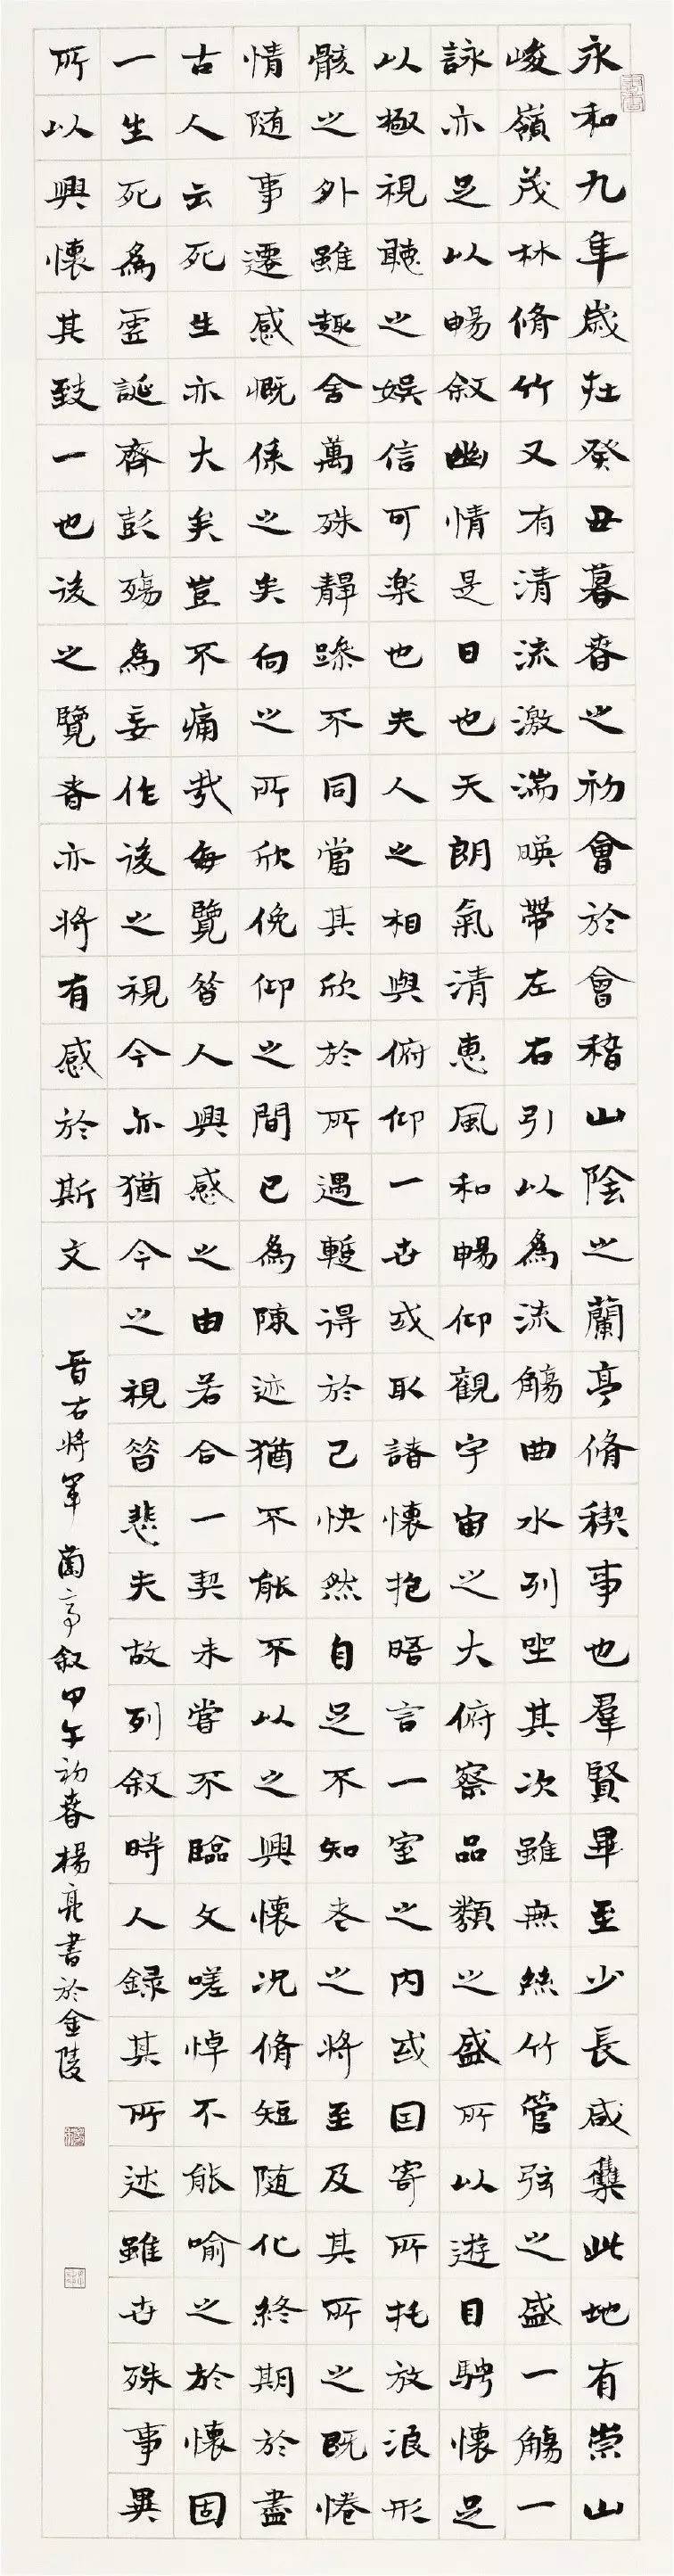 永和九年歲在癸丑暮春之初會於會稽山陰之蘭亭脩稧事也羣賢畢至少長咸集此地有崇山
峻嶺茂林脩竹又有清流激湍暎帶左右引以為流觴曲水列坐其次雖無絲竹管弦之盛一觴一
詠亦足以暢叙幽情是日也天朗氣清惠風和暢仰觀宇宙之大俯察品類之盛所以遊目騁懷足
以極視聽之娛信可樂也夫人之相與俯仰一世或取諸懷抱晤言一室之内或因寄所托放浪形
骸之外雖趣舍萬殊靜躁不同當其欣於所遇暫得於己快然自足不知老之將至及其所之既惓
情随事遷感慨係之矣向之所欣俛仰之間已為陳迹猶不能不以之興懷况脩短随化終期於盡
古人云死生亦大矣豈不痛哉每覽昔人興感之由若合一契未嘗不臨文嗟悼不能喻之於懷固
一生死為虛誕齊彭殤為妄作後之視今亦猶今之視昔悲夫故列叙時人録其所述雖世殊事異
所以興懷其致一也後之覽者亦將有感於斯文
晉右將軍蘭亭叙甲午初春楊亮書於金陵